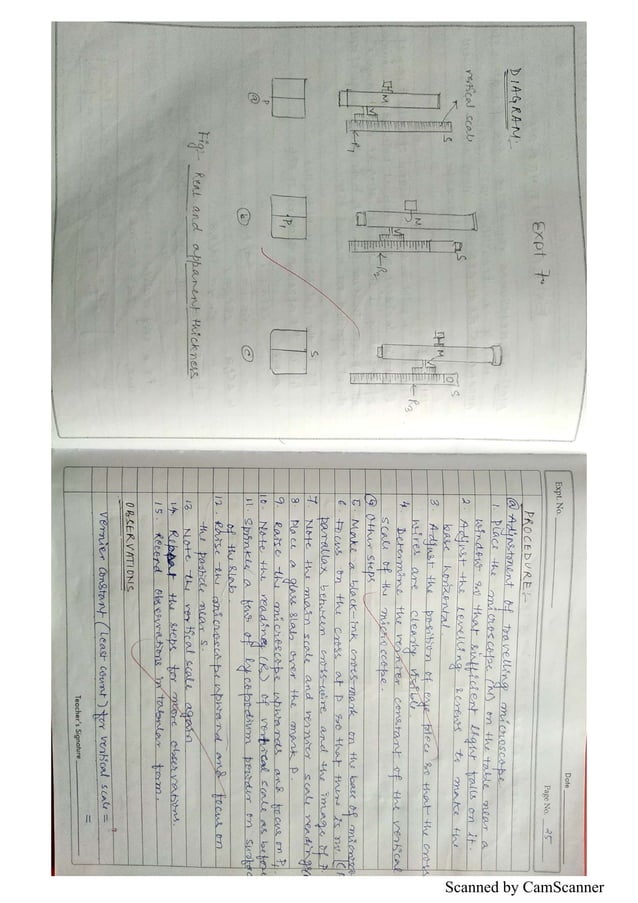 Expt 7:-
DIAGRAM:-
vertical scale
S
M
V
P1
P
(a)
S
M
V
P2
P1
(b)
S
M
V
P3
S
(c)
Fig:- Real and apparent thickness
Date
Expt. No.
Page No. 25
PROCEDURE:-
(a) Adjustment of travelling microscope
1. Place the microscope (M) on the table near a
window so that sufficient light falls on it.
2. Adjust the levelling screws to make the
base horizontal.
3. Adjust the position of eye piece so that the cross
wires are clearly visible
4. Determine the vernier constant of the vertical
scale of the microscope.
(b) Other steps
5. Make a black-ink cross-mark on the base of microsc
6. Focus on the cross at P so that there is no
parallax between cross-wire and the image of P.
7. Note the main scale and vernier scale readings
8. Place a glass slab over the mark P.
9. Raise the microscope upwards and focus on P1
10. Note the reading (R2) of vertical scale as before
11. Sprinkle a few of lycopodium powder on surface
of the slab.
12. Raise the microscope upward and focus on
the particle near S.
13. Note the vertical scale again
14. Repeat the steps for more observations.
15. Record observations in tabular form.
OBSERVATIONS
Vernier constant (least count) for vertical scale = ?
=
Teacher's Signature
Scanned by CamScanner